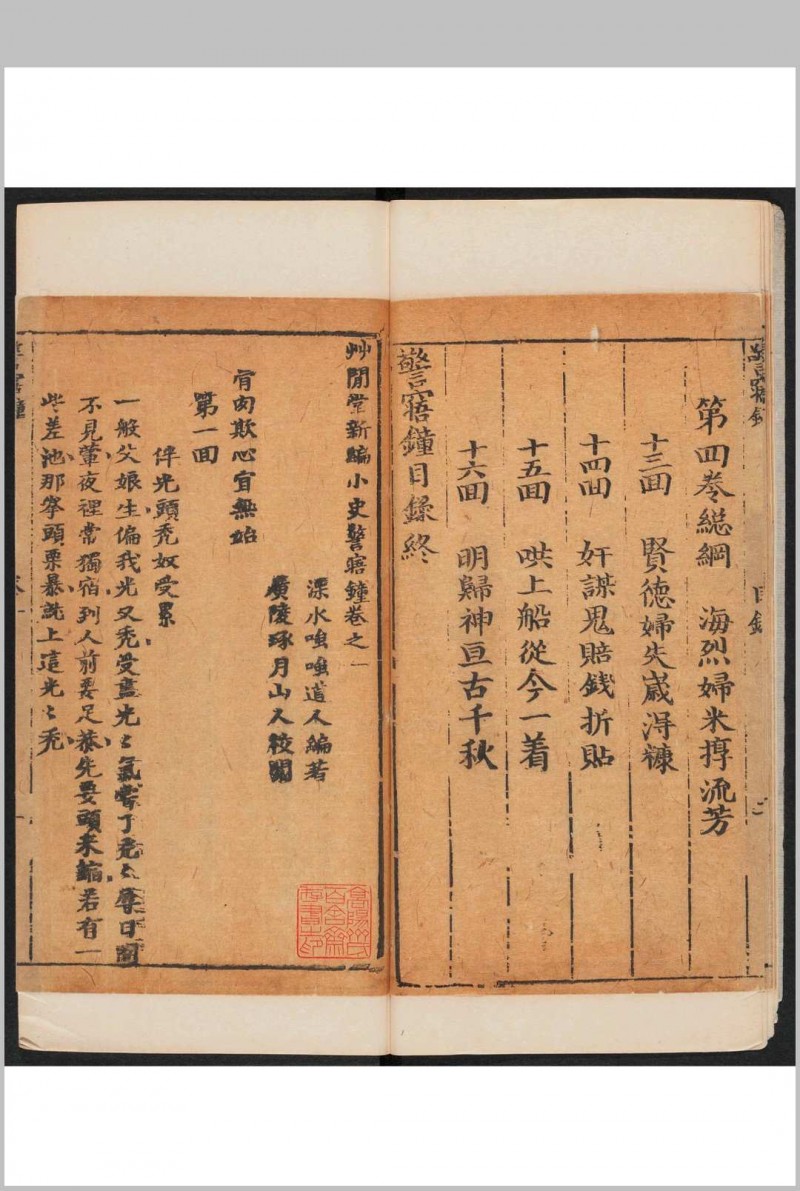 警寤鐘
目錄
第四卷總綱　海烈婦米椁流芳
十三囬　賢德婦失嵗淂糠
十四囬　奸謀鬼賠錢折貼
十五囬　哄上船從今一着
十六囬　明歸神亘古千秋
警寤鐘目錄終
艸閒堂新編小史警寤鐘卷之一
溧水嗤嗤道人編著
廣陵琢月山人校閱
骨肉欺心宜無始
第一囬
伴光頭秃奴受累
一般父娘生偏我光又秃受盡光〻氣嘗了秃〻辱日間
不見葷夜裡常獨宿到人前要足恭先要頭來縮若有一
些差池那拳頭栗暴就上這光〻秃
警寤鐘
卷一